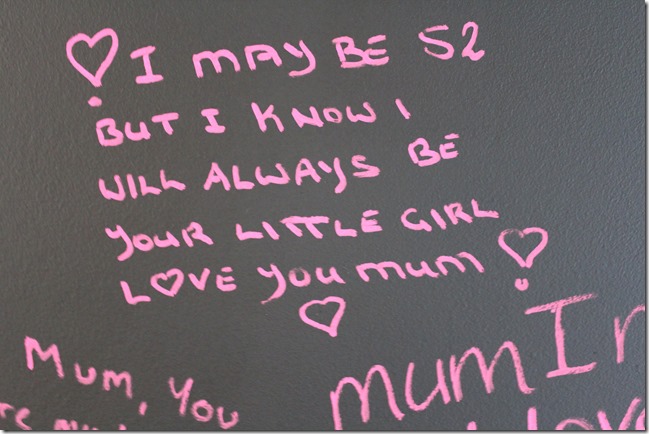 I MAY BE 52
BUT I KNOW I
WILL ALWAYS BE
YOUR LITTLE GIRL
LOVE YOU MUM
MUM, YOU
MUM I